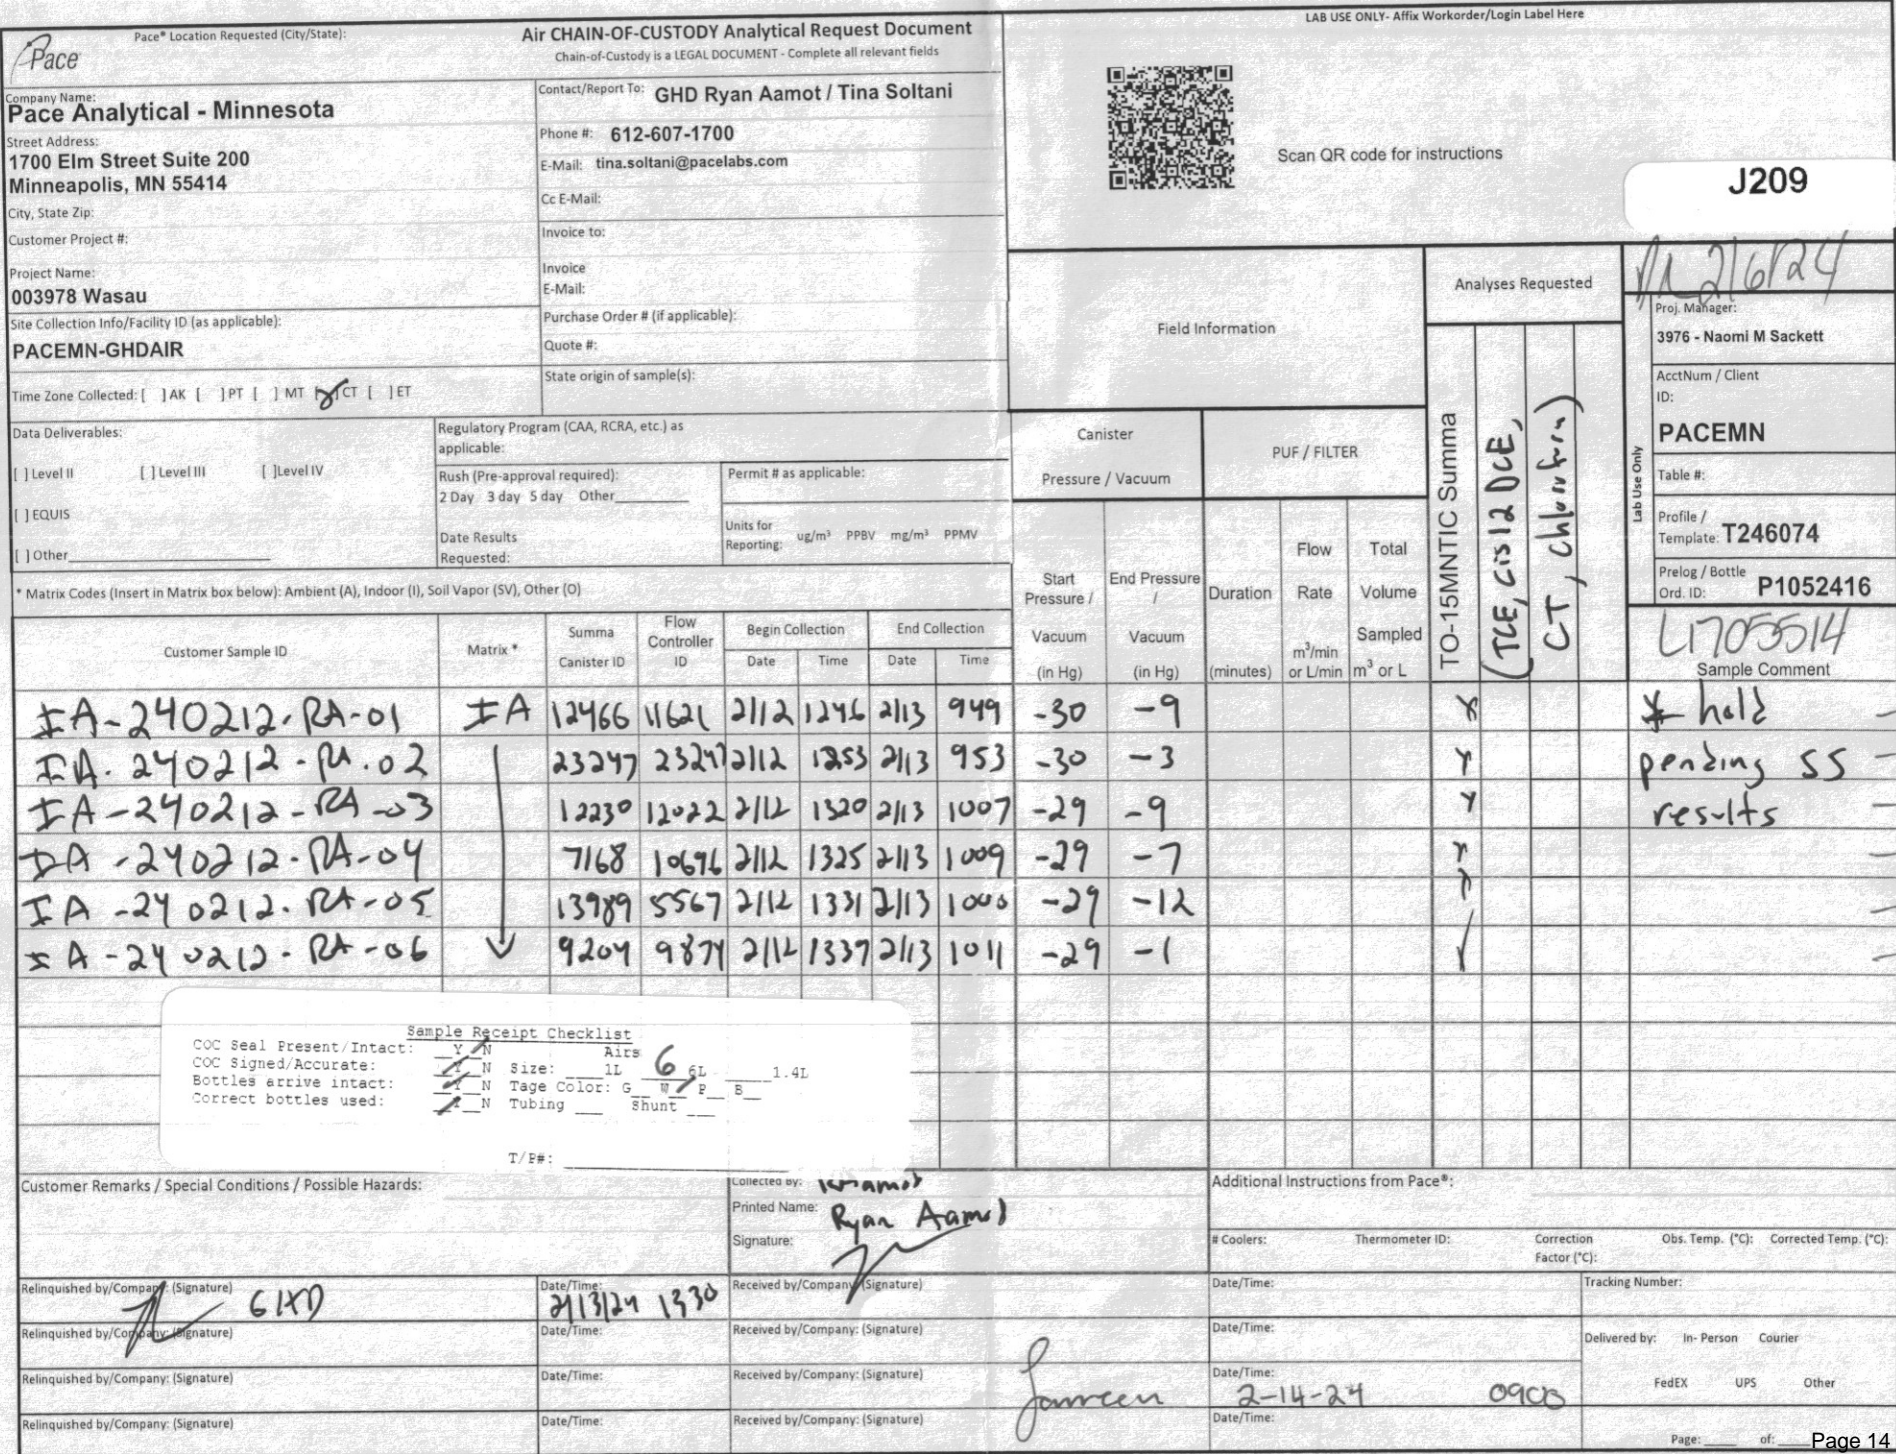 Pace
Pace® Location Requested (City/State):
Air CHAIN-OF-CUSTODY Analytical Request Document
Chain-of-Custody is a LEGAL DOCUMENT - Complete all relevant fields
LAB USE ONLY- Affix Workorder/Login Label Here
Company Name:
Pace Analytical - Minnesota
Street Address:
1700 Elm Street Suite 200
Minneapolis, MN 55414
City, State Zip:
Customer Project #:
Project Name:
003978 Wasau
Site Collection Info/Facility ID (as applicable):
PACEMN-GHDAIR
Time Zone Collected: [ ] AK [ ] PT [ ] MT [X] CT [ ] ET
Contact/Report To: GHD Ryan Aamot / Tina Soltani
Phone #: 612-607-1700
E-Mail: tina.soltani@pacelabs.com
Cc E-Mail:
Invoice to:
Invoice
E-Mail:
Purchase Order # (if applicable):
Quote #:
State origin of sample(s):
Scan QR code for instructions
J209
2/6/24
Data Deliverables:
[ ] Level II [ ] Level III [ ]Level IV
[ ] EQUIS
[ ] Other
Regulatory Program (CAA, RCRA, etc.) as
applicable:
Rush (Pre-approval required):
2 Day 3 day 5 day Other
Date Results
Requested:
Permit # as applicable:
Units for
Reporting: ug/m³ PPBV mg/m³ PPMV
Field Information
Canister
Pressure / Vacuum
PUF / FILTER
Analyses Requested
TO-15MNTIC Summa
(TCE, cis 12 DCE,
CT, chloroform)
Lab Use Only
Proj. Manager:
3976 - Naomi M Sackett
AcctNum / Client
ID:
PACEMN
Table #:
Profile /
Template: T246074
Prelog / Bottle
Ord. ID: P1052416
L1705514
Sample Comment
* Matrix Codes (Insert in Matrix box below): Ambient (A), Indoor (I), Soil Vapor (SV), Other (O)
Customer Sample ID
Matrix *
Summa
Canister ID
Flow
Controller
ID
Begin Collection
Date Time
End Collection
Date Time
Start
Pressure /
Vacuum
(in Hg)
End Pressure
/
Vacuum
(in Hg)
Duration
(minutes)
Flow
Rate
m³/min
or L/min
Total
Volume
Sampled
m³ or L
IA-240212-RA-01 IA 12466 11621 2/12 1246 2/13 949 -30 -9 X * hold
IA-240212-RA-02 23247 23247 2/12 1253 2/13 953 -30 -3 X pending SS
IA-240212-RA-03 12230 12022 2/12 1320 2/13 1007 -29 -9 X results
IA-240212-RA-04 7168 10696 2/12 1325 2/13 1009 -29 -7 X
IA-240212-RA-05 13989 5567 2/12 1331 2/13 1000 -29 -12 X
IA-240212-RA-06 9204 9874 2/12 1337 2/13 1011 -29 -1
Sample Receipt Checklist
COC Seal Present/Intact: Y N Airs
COC Signed/Accurate: Y N Size: 1L 6 6L 1.4L
Bottles arrive intact: Y N Tage Color: G W P B
Correct bottles used: Y N Tubing Shunt
T/P#:
Customer Remarks / Special Conditions / Possible Hazards:
Collected By: R Aamot
Printed Name: Ryan Aamot
Signature:
Additional Instructions from Pace®:
# Coolers: Thermometer ID: Correction
Factor (°C): Obs. Temp. (°C): Corrected Temp. (°C):
Relinquished by/Company: (Signature) GHD
Date/Time: 2/13/24 1330
Received by/Company: (Signature)
Date/Time:
Tracking Number:
Relinquished by/Company: (Signature)
Date/Time:
Received by/Company: (Signature)
Date/Time:
Delivered by: In- Person Courier
Relinquished by/Company: (Signature)
Date/Time:
Received by/Company: (Signature)
Date/Time: 2-14-24 0900
FedEX UPS Other
Relinquished by/Company: (Signature)
Date/Time:
Received by/Company: (Signature)
Date/Time:
Page: of:
Page 14